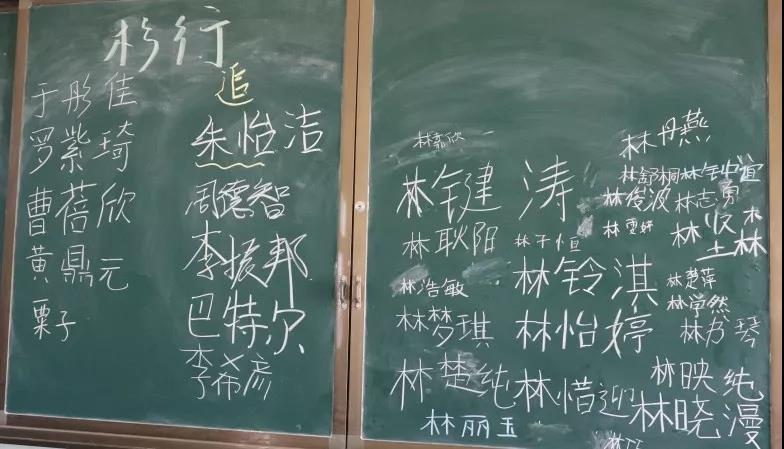 杉行
追
于彤佳
罗紫琦
曹蓓欣
黄鼎元
粟子
朱怡洁
周德智
李振邦
巴特尔
李希彦
林嘉欣
林健涛
林耿阳
林子恒
林浩敏
林铃淇
林梦琪
林怡婷
林楚纯
林惜迎
林丽玉
林丹燕
林舒桐
林俊波
林志勇
林雯婷
林楚萍
林学然
林书琴
林映纯
林晓漫